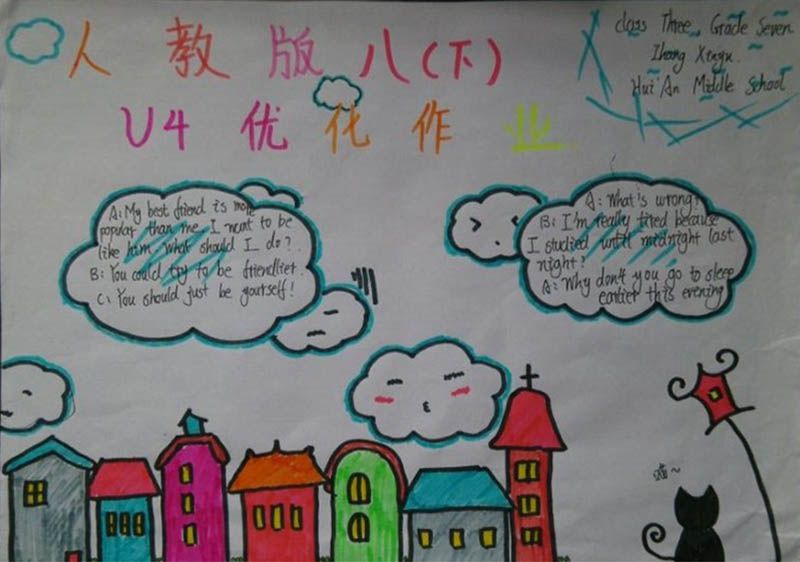 人教版八(下)
U4 优化作业
Class Three, Grade Seven
Zhang Xinyu.
Hui'An Middle School
A: My best friend is more
popular than me. I want to be
like him. What should I do?
B: You could try to be friendlier.
C: You should just be yourself!
A: What's wrong?
B: I'm really tired because
I studied until midnight last
night?
A: Why don't you go to sleep
earlier this evening
喵~